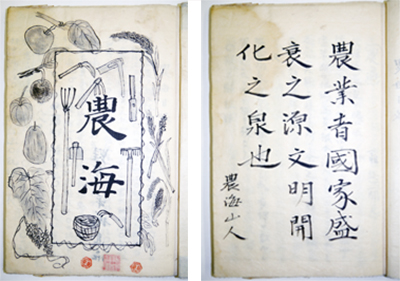 農海
農業者國家盛
衰之源文明開
化之泉也
農海山人